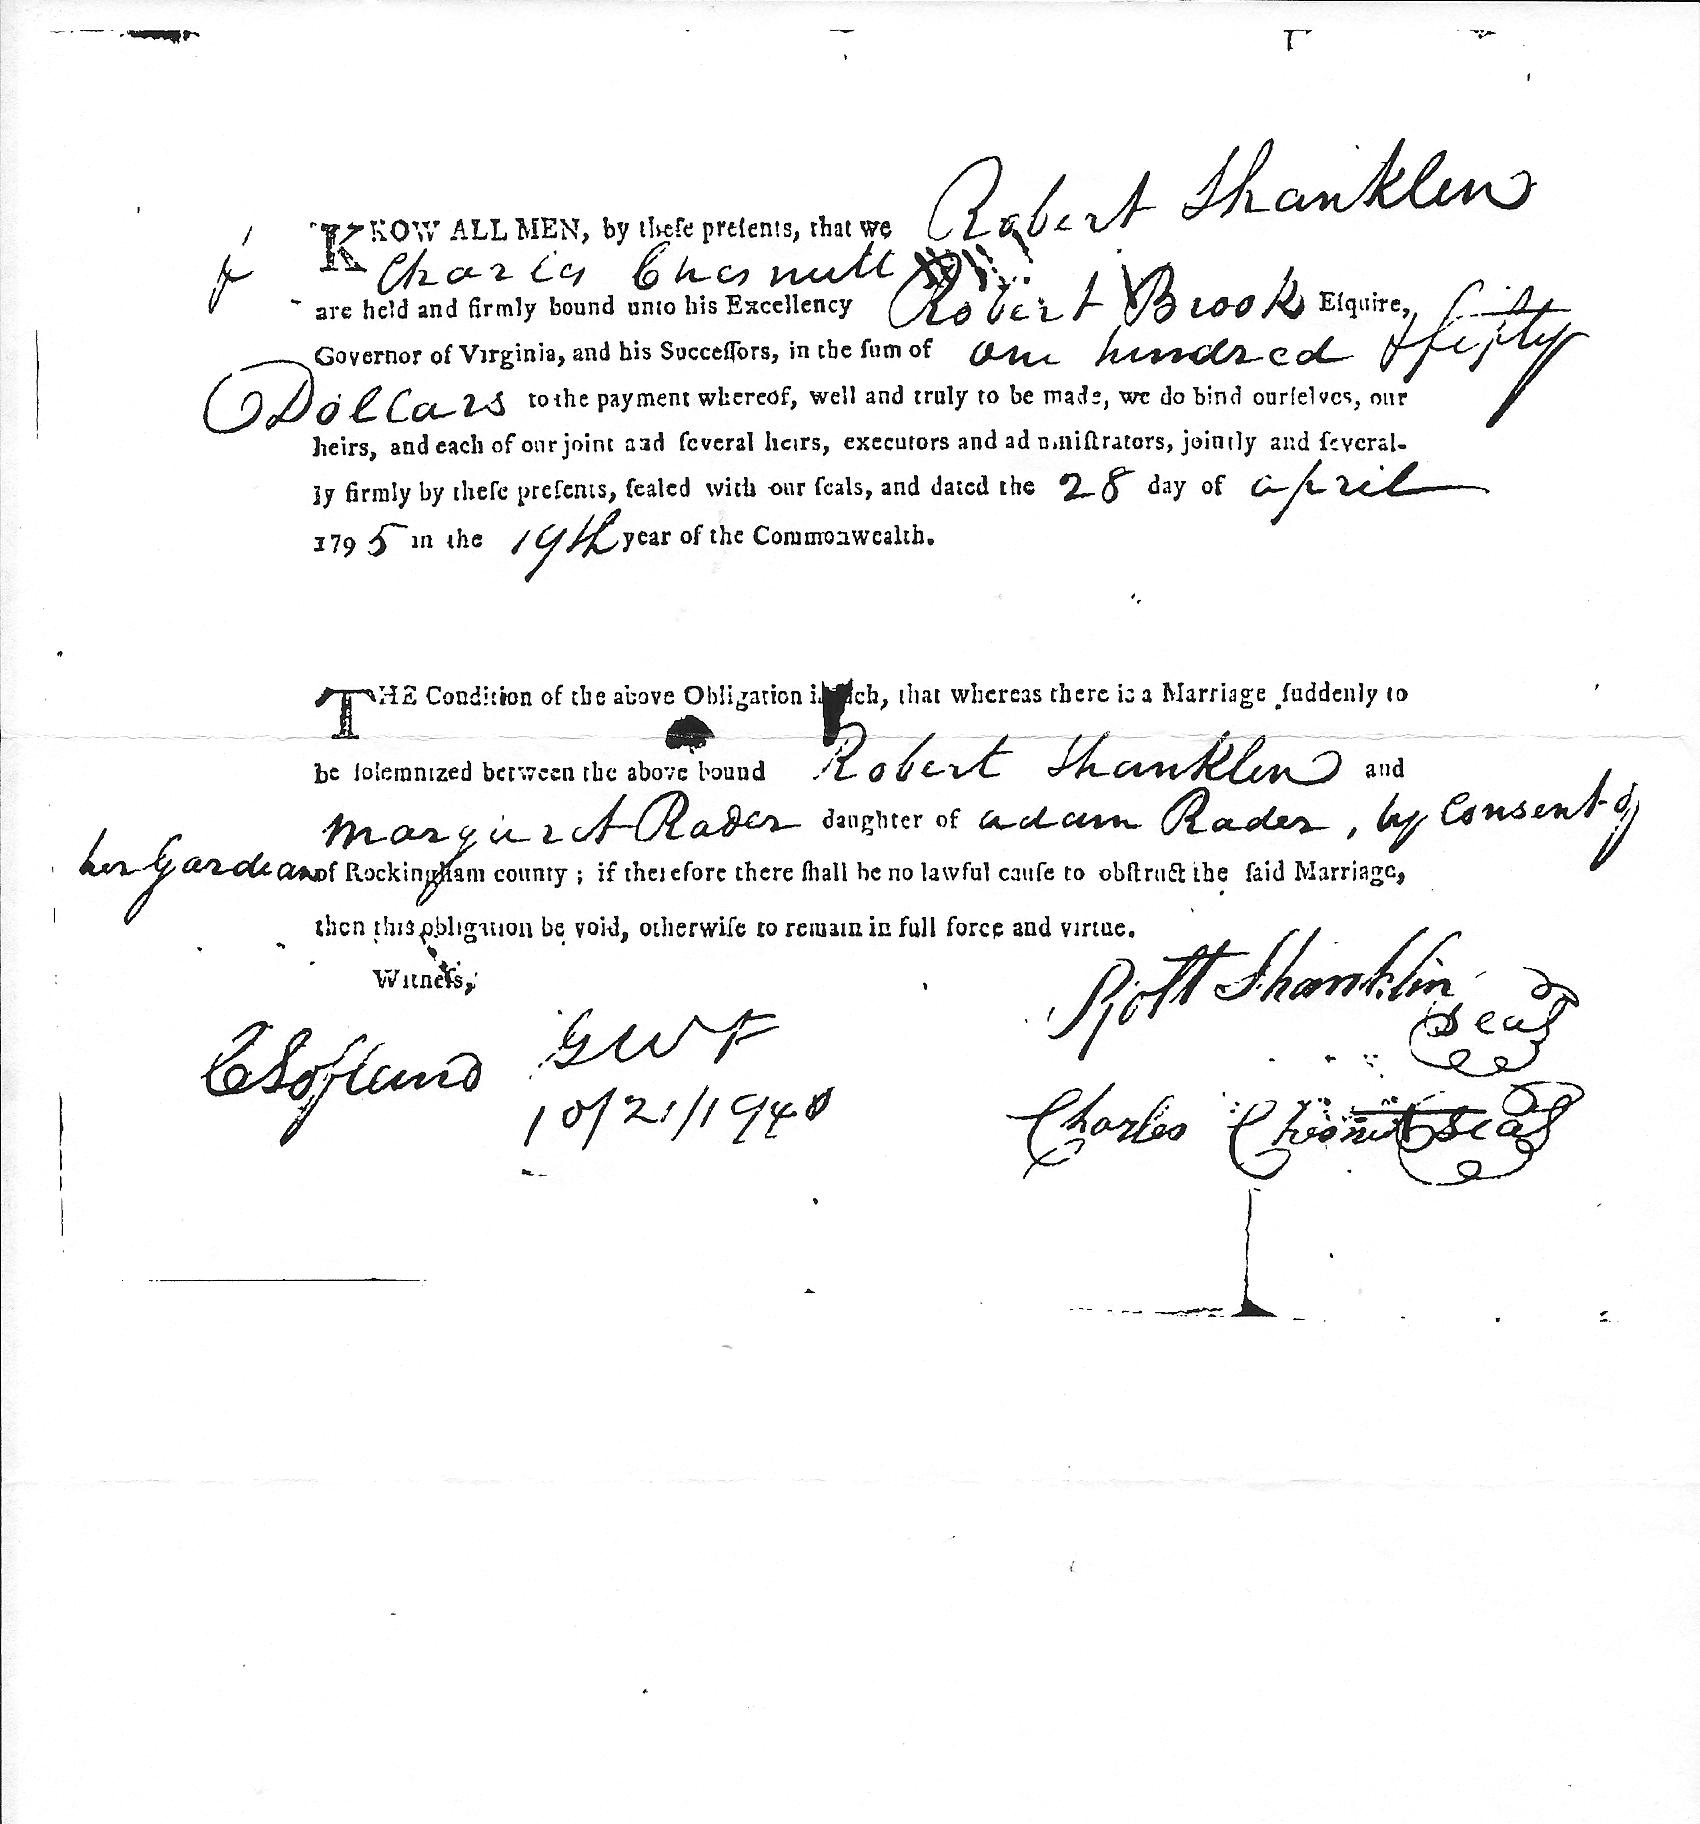 Robert Shanklen
KNOW ALL MEN, by theſe preſents, that we
& Charles Chesnutt
are held and firmly bound unto his Excellency Robert Brook Eſquire,
Governor of Virginia, and his Succeſſors, in the ſum of one hundred & fifty
Dollars to the payment whereof, well and truly to be made, we do bind ourſelves, our
heirs, and each of our joint and ſeveral heirs, executors and adminiſtrators, jointly and ſeveral-
ly firmly by theſe preſents, ſealed with our ſeals, and dated the 28 day of april
1795 in the 19th year of the Commonwealth.
THE Condition of the above Obligation is ſuch, that whereas there is a Marriage ſuddenly to
be ſolemnized between the above bound Robert Shanklen and
Margaret Rader daughter of adam Rader, by Consent of
her Gardean of Rockingham county; if therefore there ſhall be no lawful cauſe to obſtruct the ſaid Marriage,
then this obligation be void, otherwiſe to remain in full force and virtue.
Witneſs,
Robt Shanklin
Seal
GWF
10/21/1940
Charles Chesnut Seal